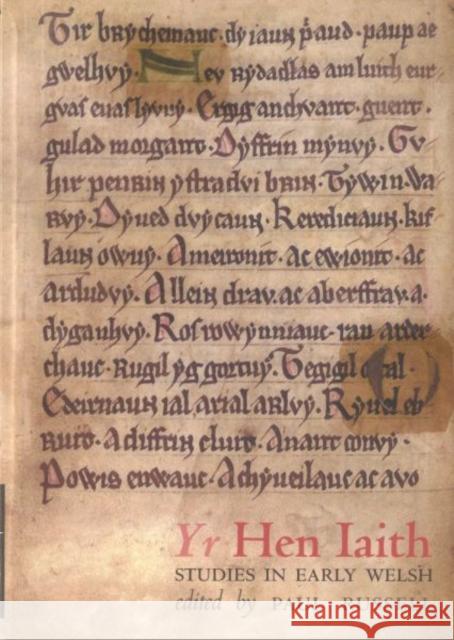 Tir brychemauc. dy iaun paud. paup ae
gwelhvy. Nev rydadlas am luith eur
gvas euas lyvry. Ergig anchvant. guent.
gulad morgant. Dyffrin mynvy. Gv
hir penrin ystradvi brin. Tywin. Wa
rvy. Dyued dvycaun. Kerediciaun. kif
laun owuy. Ameironit. ac ewionit. ac
ardudvy. Allein drav. ac aberffrav. a.
dyganhvy. Ros rowynniauc. ran arder
chauc. rugil yg gortuy. Tegigil
Edeirnaun ial. arial arlvy. Ryuel eb
ruto. A diffrin cluto. A nant convy.
Powis enwauc. A chyueilauc ac avo
Yr Hen Iaith
STUDIES IN EARLY WELSH
edited by PAUL RUSSELL